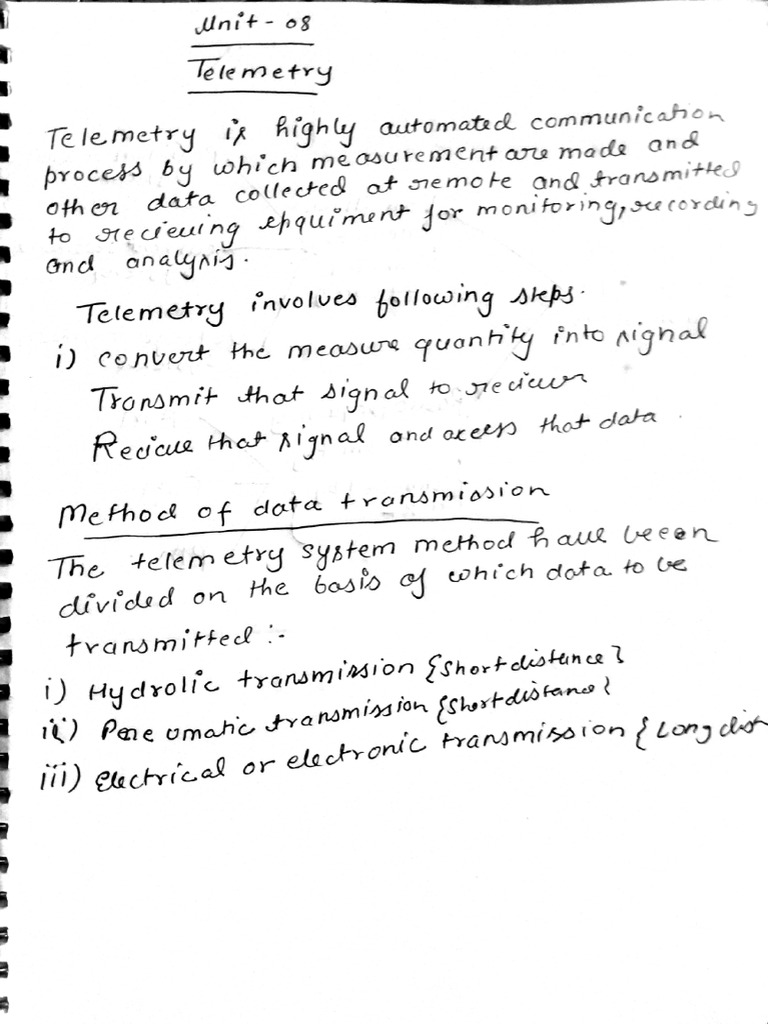 Unit - 08
Telemetry
Telemetry is highly automated communication
process by which measurement are made and
other data collected at remote and transmitted
to recieving epquiment for monitoring, recording
and analysis.
Telemetry involves following steps.
i) convert the measure quantity into signal
Transmit that signal to reciever
Recieve that signal and axess that data.
Method of data transmission
The telemetry system method have beeen
divided on the basis of which data to be
transmitted :-
i) Hydrolic transmission {Short distance}
ii) Pene umatic transmission {Short distance}
iii) Electrical or electronic transmission { Long dist